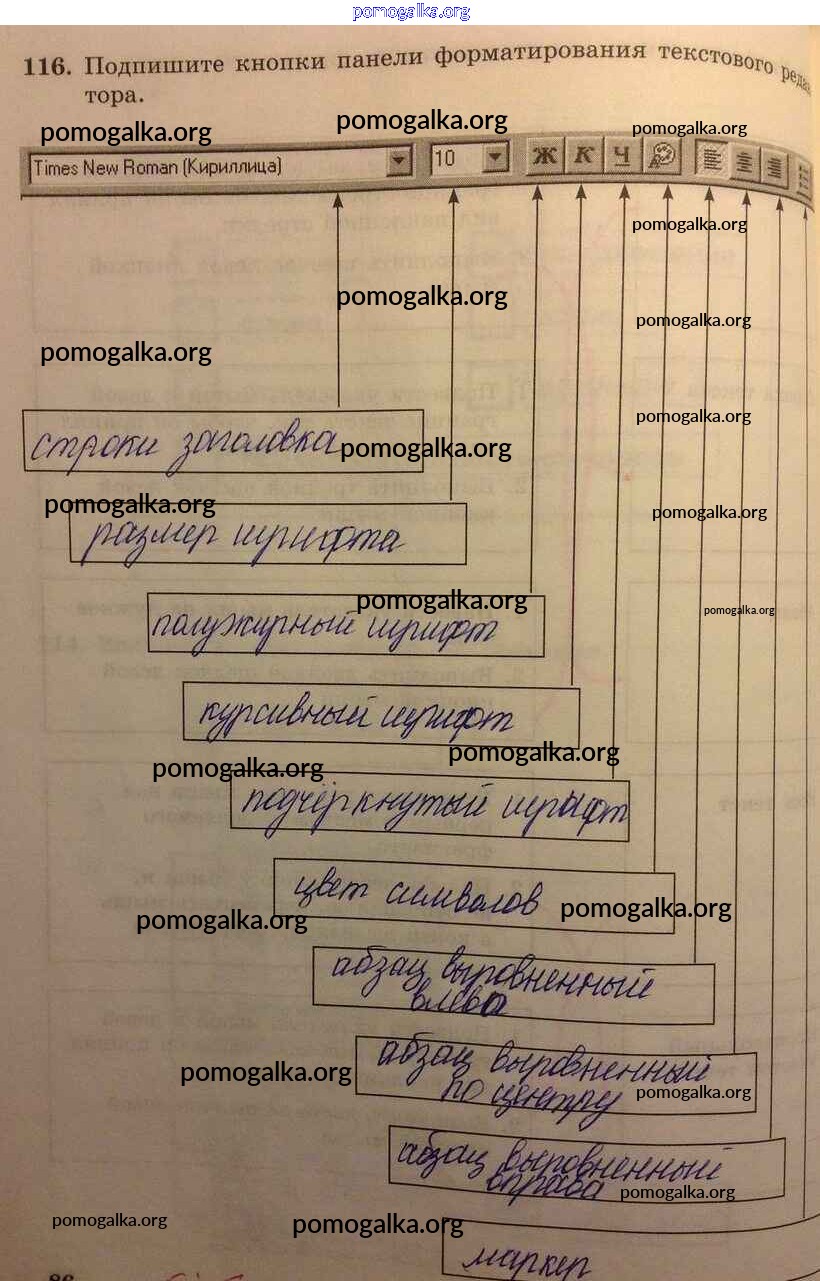 pomogalka.org
116. Подпишите кнопки панели форматирования текстового редак
тора.
pomogalka.org pomogalka.org pomogalka.org
Times New Roman (Кириллица) 10 Ж К Ч
pomogalka.org
pomogalka.org
pomogalka.org
pomogalka.org
pomogalka.org
строки заголовка pomogalka.org
pomogalka.org pomogalka.org
размер шрифта
pomogalka.org pomogalka.org
полужирный шрифт
курсивный шрифт
pomogalka.org
pomogalka.org
подчёркнутый шрифт
цвет символов pomogalka.org
pomogalka.org
абзац выровненный
влево
абзац выровненный
pomogalka.org по центру pomogalka.org
абзац выровненный
вправа pomogalka.org
pomogalka.org pomogalka.org
маркер
86